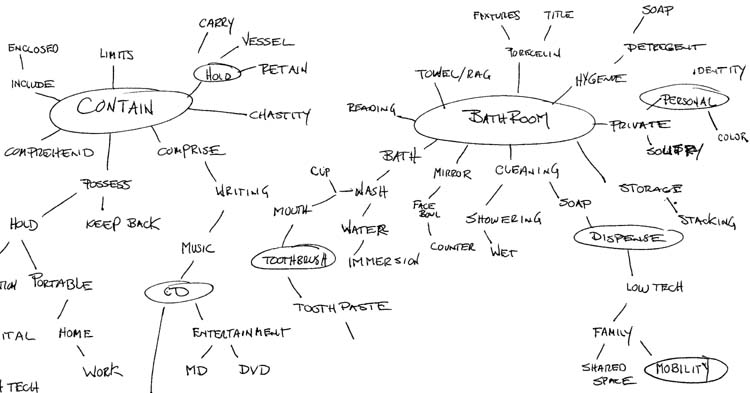 CARRY
VESSEL
HOLD
RETAIN
ENCLOSED
LIMITS
INCLUDE
CONTAIN
CHASTITY
COMPREHEND
COMPRISE
POSSESS
HOLD
KEEP BACK
WRITING
MUSIC
PORTABLE
CD
ITAL
HOME
ENTERTAINMENT
WORK
MD
DVD
TECH
FIXTURES
TITLE
SOAP
PORECELIN
DETERGENT
TOWEL/RAG
HYGENE
IDENTITY
PERSONAL
READING
BATHROOM
PRIVATE
COLOR
BATH
MIRROR
CLEANING
CUP
WASH
STORAGE
MOUTH
FACE
BOWL
SOAP
SHOWERING
STACKING
WATER
DISPENSE
COUNTER
WET
TOOTHBRUSH
IMMERSION
LOW TECH
TOOTHPASTE
FAMILY
SHARED
SPACE
MOBILITY